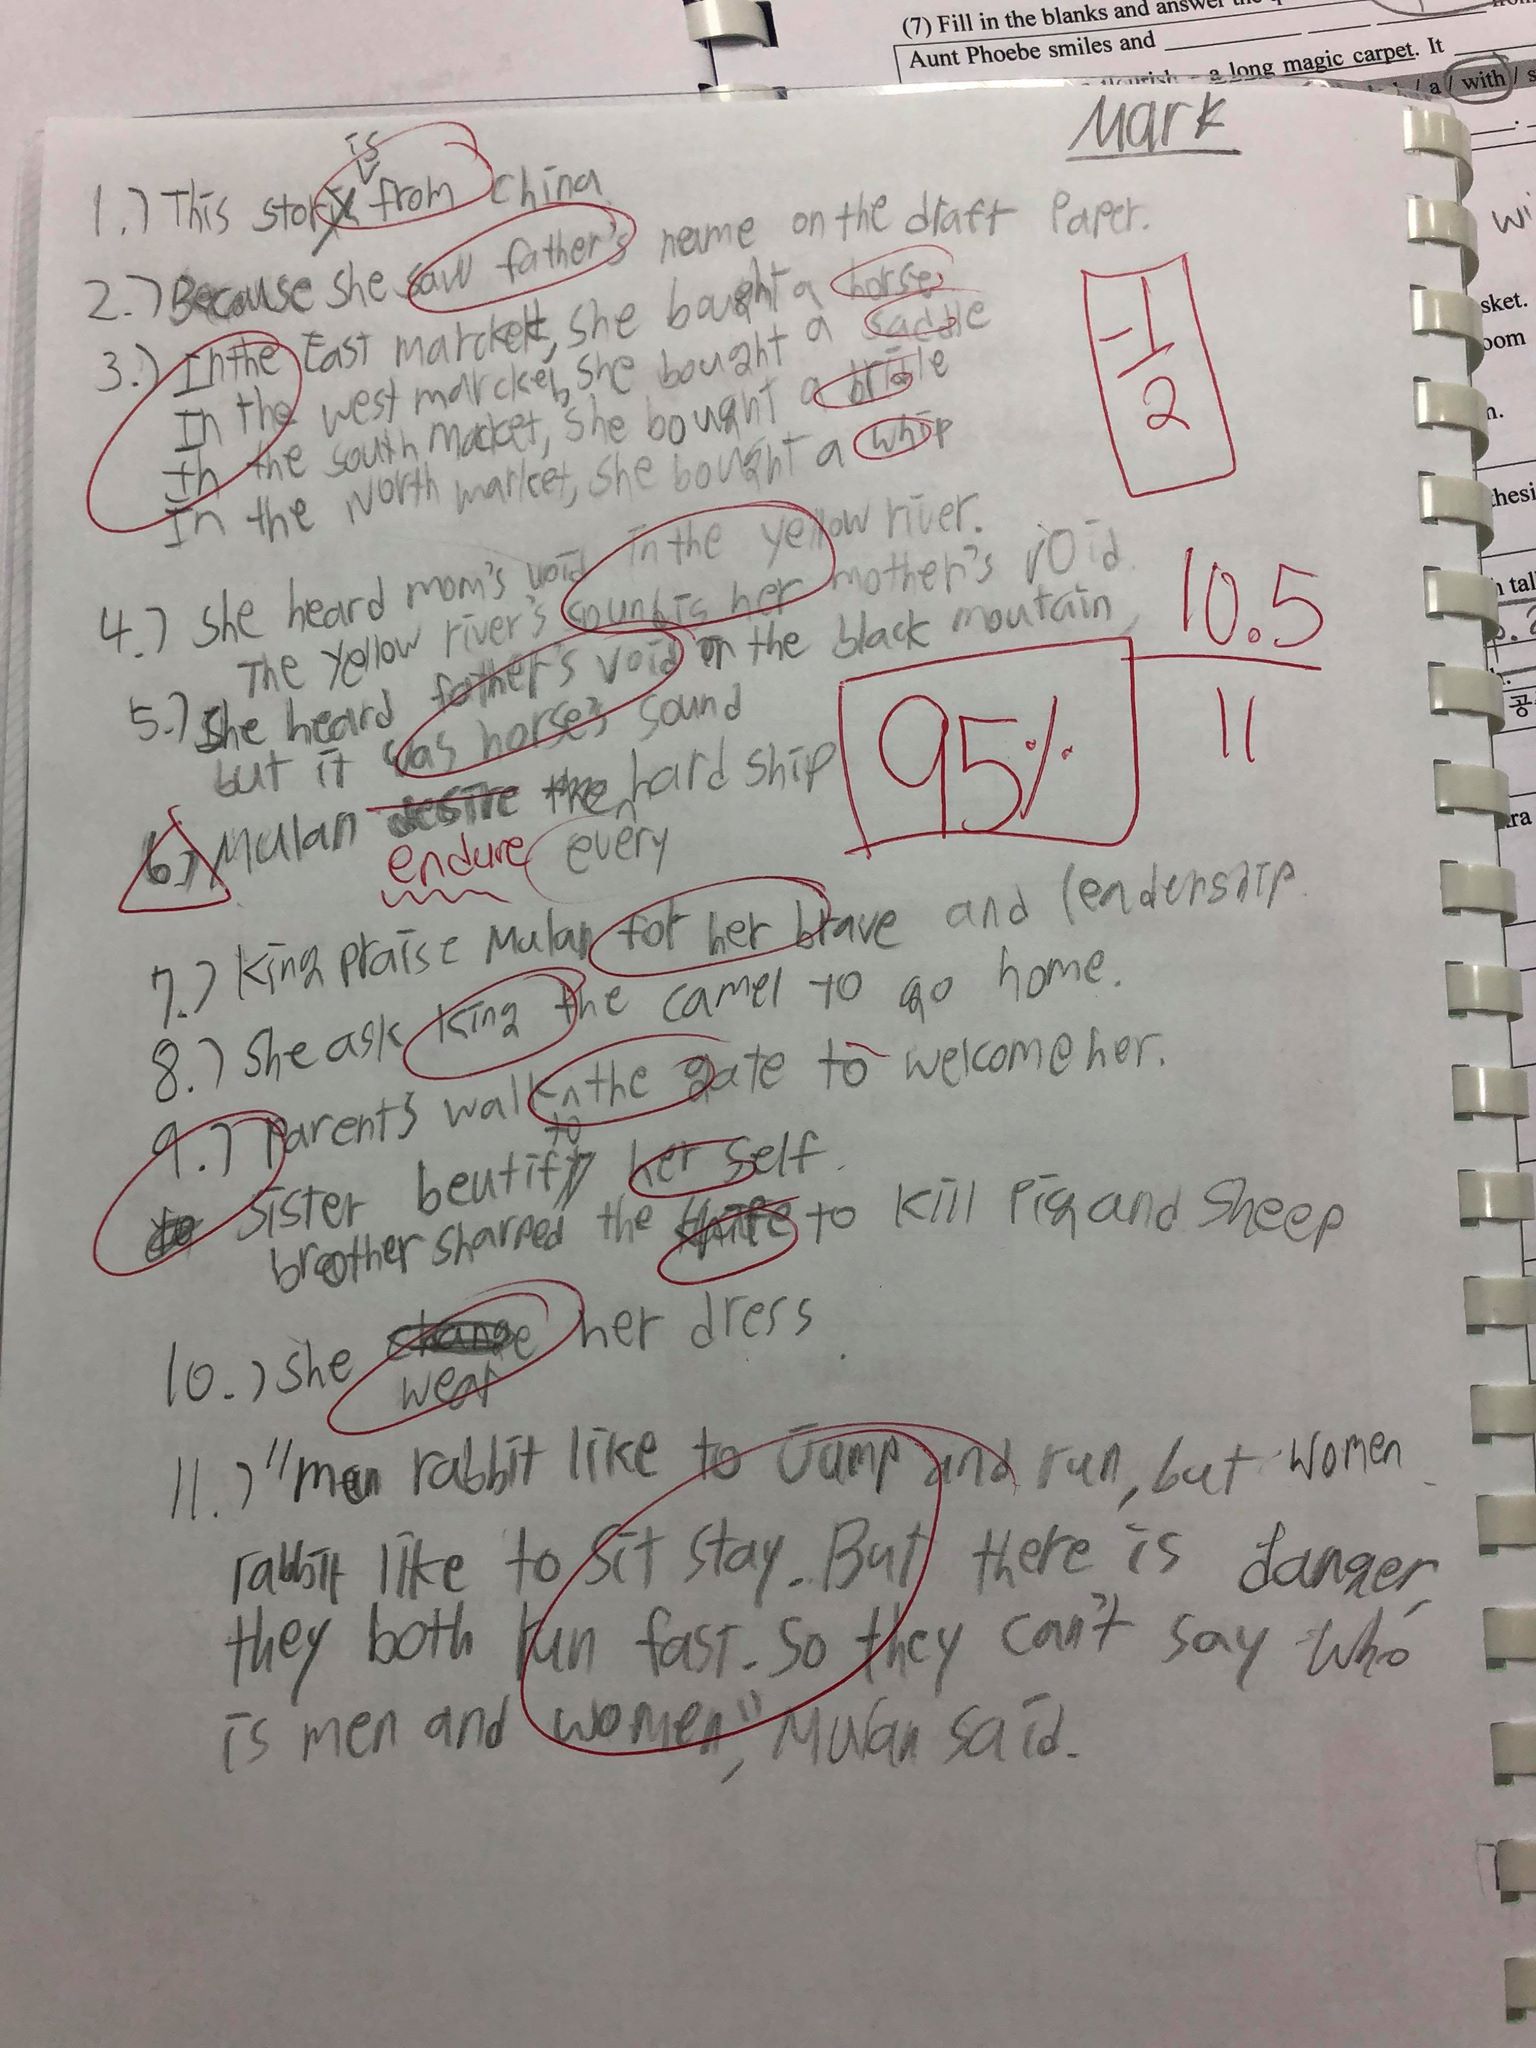 (7) Fill in the blanks and answer the
Aunt Phoebe smiles and
a long magic carpet. It
/ a / with / s
Mark
is
1.) This story from China
2.) Because she saw father's neme on the draft Paper.
3.) In the East marckett, she bought a horse
In the west marcket, she bought a saddle
In the south market, she bought a bridle
In the North market, she bought a whip
-1/2
4.) she heard mom's void in the yellow river.
The yellow river's sound is her mother's void.
5.) She heard father's void on the black moutain,
but it was horse's sound
10.5
11
95%
6.) Mulan desire the hard ship
endure every
7.) King praise Mulan for her brave and leadership.
8.) She ask king the camel to go home.
9.) Parents walk the gate to welcome her.
to
Sister beutify her self.
broother sharped the knife to kill Pig and Sheep
10.) she change her dress
wear
11.) "men rabbit like to Jump and run, but women
rabbit like to sit stay. But there is danger,
they both run fast. So they can't say who
is men and women," Mulan said.
sket.
oom
n.
thesi
n tal
공
ra